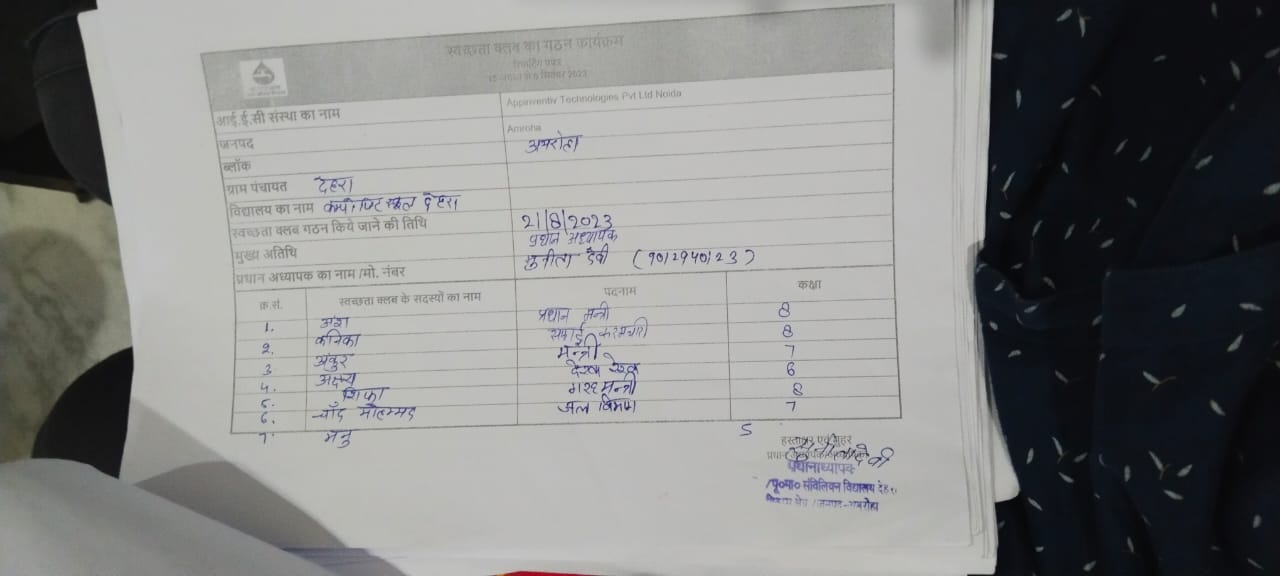 स्वच्छता क्लब का गठन कार्यक्रम
रिपोर्टिंग प्रपत्र
आई.ई.सी संस्था का नाम Appinventiv Technologies Pvt Ltd Noida
जनपद Amroha
ब्लॉक अमरोहा
ग्राम पंचायत देहरा
विद्यालय का नाम कम्पोजिट स्कूल देहरा
स्वच्छता क्लब गठन किये जाने की तिथि 21/8/2023
मुख्य अतिथि प्रधान अध्यापक
प्रधान अध्यापक का नाम /मो. नंबर सुनीता देवी
क्र.सं. स्वच्छता क्लब के सदस्यों का नाम पदनाम कक्षा
1. अंश प्रधान मन्त्री 8
2. कनिका सफाई कर्मचारी 8
3 अंकुर मन्त्री 7
4. अक्षय देख रेख 6
5. शिफा 8
6. चाँद मोहम्मद जल विभाग 7
7. मनु 5
हस्ताक्षर एवं मुहर
प्रधानाध्यापक
पू०मा० संविलियन विद्यालय देहरा
जनपद-अमरोहा